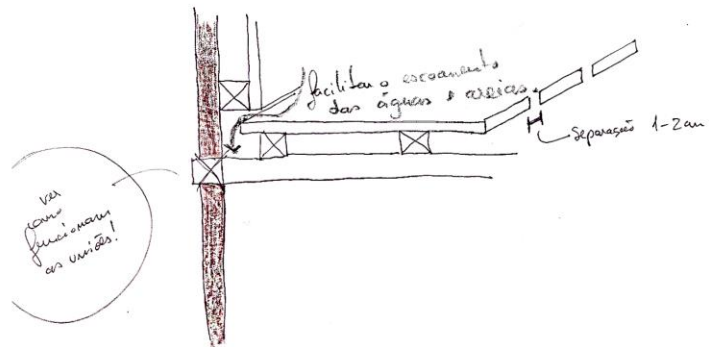 facilitar o escoamento
das águas e areias.
Separação 1-2cm
ver
como
funcionam
as uniões!